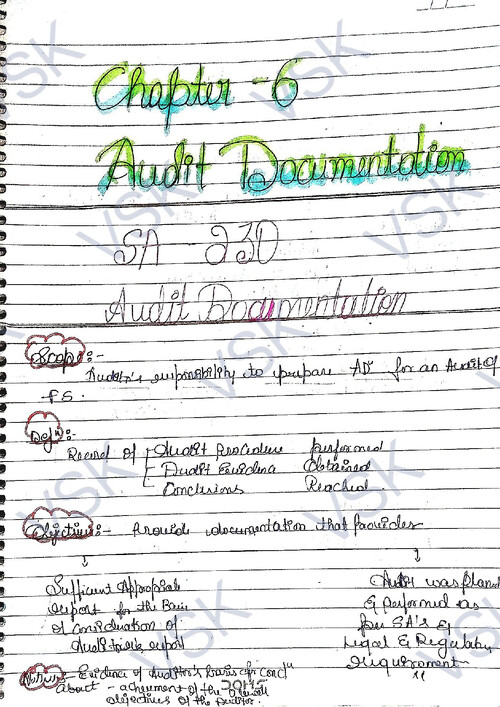 Chapter - 6
Audit Documentation
SA - 230
Audit Documentation
Scope:-
Auditor's responsibility to prepare AD for an Audit of
FS.
Defn:-
Record of - Audit Procedure performed
- Audit Evidence Obtained
Conclusions Reached
Objective:- Provide documentation that provides
↓ ↓
Sufficient Appropriate
report for the Basis
of consideration of
Auditor's report
Audit was planned
& performed as
per SA's &
Legal & Regulatory
requirement
Nature:- Evidence of Auditor's basis for concln
about - achievement of the overall
objectives of the auditor.
VSK
VSK
VSK
VSK
VSK
VSK
VSK
VSK
VSK
VSK